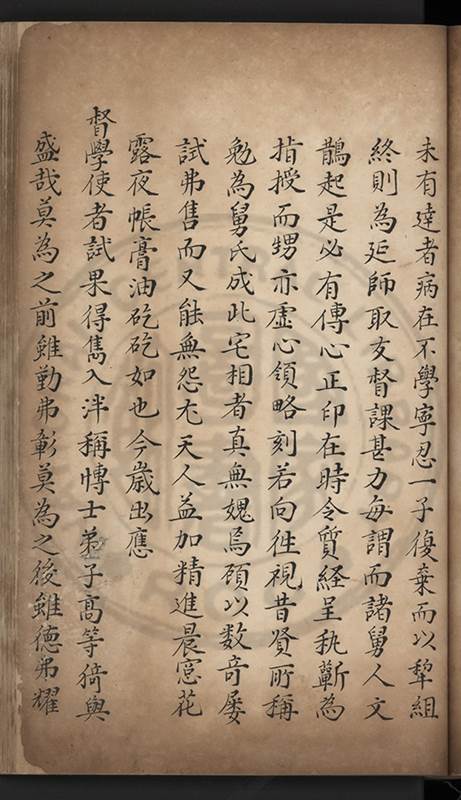 未有達者病在不學寧忍一子復棄而以犂組
終則為延師取友督課甚力每謂而諸舅人文
鵲起是必有傳心正印在時令質經呈執蘄為
指授而甥亦虛心領略刻若向徃視昔賢所稱
勉為舅氏成此宅相者真無媿焉頋以数竒屡
試弗售而又能無怨尤天人益加精進晨窓花
露夜帳膏油矻矻如也今歲出應
督學使者試果得雋入泮稱博士弟子高等猗與
盛哉莫為之前雖勤弗彰莫為之後雖德弗耀